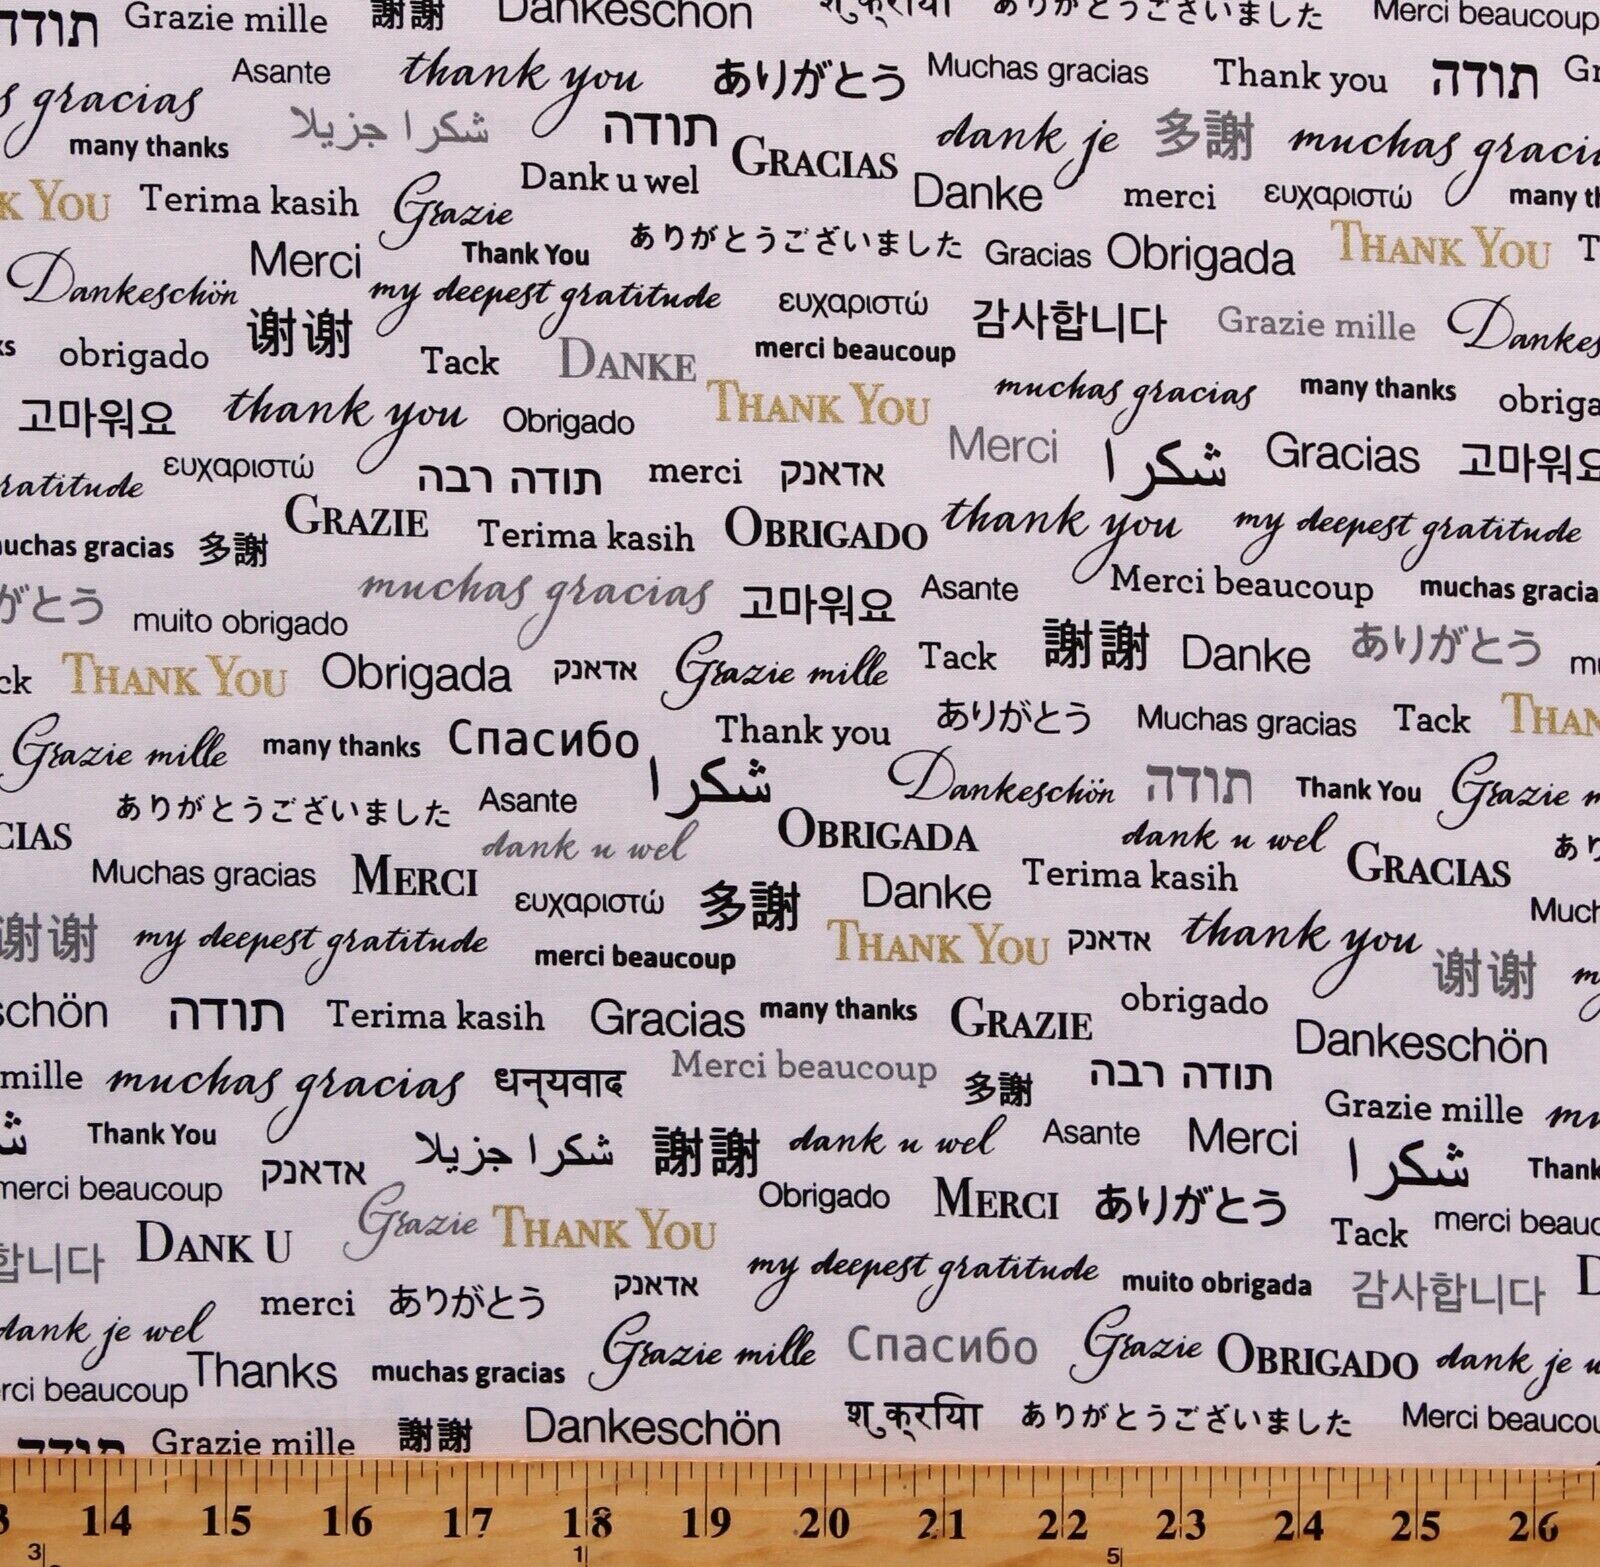 תודה Grazie mille 謝謝 Dankeschön ありがとうございました Merci beaucoup
Asante thank you ありがとう Muchas gracias Thank you תודה
gracias شكرا جزيلا תודה dank je 多謝 muchas
many thanks Dank u wel GRACIAS Danke merci ευχαριστώ many
YOU Terima kasih Grazie Thank You ありがとうございました Gracias Obrigada THANK YOU
Dankeschön Merci my deepest gratitude ευχαριστώ 감사합니다 Grazie mille
obrigado 谢谢 Tack DANKE merci beaucoup muchas gracias many thanks
고마워요 thank you Obrigado THANK YOU Merci شكرا Gracias 고마워요
ευχαριστώ תודה רבה merci אדאנק
gracias 多謝 GRAZIE Terima kasih OBRIGADO thank you my deepest gratitude
muito obrigado muchas gracias 고마워요 Asante Merci beaucoup muchas
THANK YOU Obrigada אדאנק Grazie mille Tack 謝謝 Danke ありがとう
Grazie mille many thanks Спасибо Thank you ありがとう Muchas gracias Tack
ありがとうございました Asante شكرا Dankeschön תודה Thank You Grazie
Muchas gracias MERCI dank u wel OBRIGADA dank u wel GRACIAS
ευχαριστώ 多謝 Danke Terima kasih
谢谢 my deepest gratitude merci beaucoup THANK YOU אדאנק thank you 谢谢
תודה Terima kasih Gracias many thanks GRAZIE obrigado Dankeschön
mille muchas gracias धन्यवाद Merci beaucoup 多謝 תודה רבה Grazie mille
Thank You אדאנק شكرا جزيلا 謝謝 dank u wel Asante Merci شكرا Thank
merci beaucoup Grazie THANK YOU Obrigado MERCI ありがとう Tack merci
DANK U my deepest gratitude muito obrigada 감사합니다
merci ありがとう אדאנק
dank je wel Thanks muchas gracias Grazie mille Спасибо Grazie OBRIGADO dank je
beaucoup
תודה Grazie mille 謝謝 Dankeschön शुक्रिया ありがとうございました Merci
14 15 16 17 18 19 20 21 22 23 24 25 26